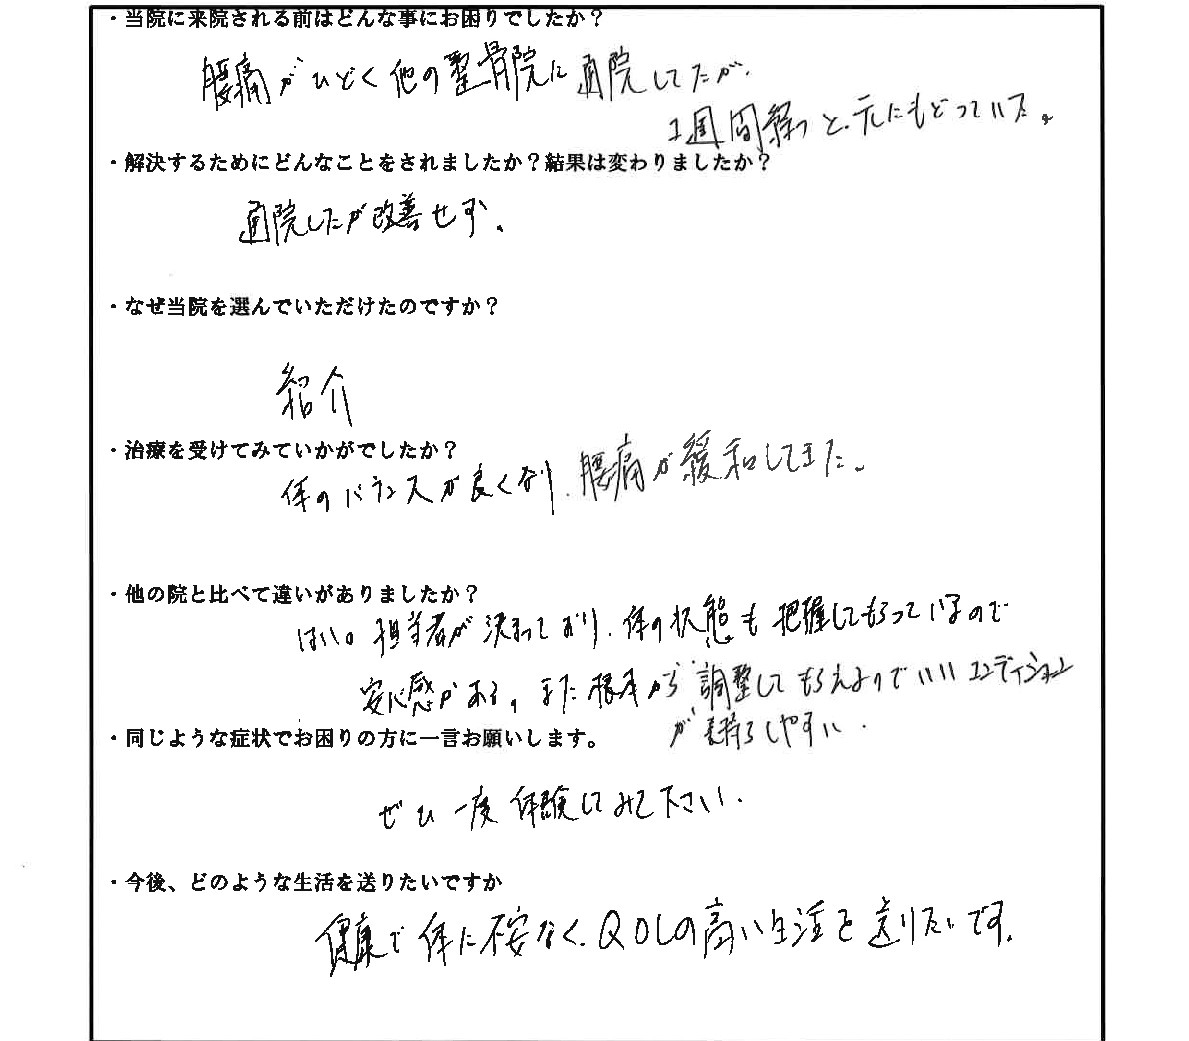 ・当院に来院される前はどんな事にお困りでしたか？
腰痛がひどく他の整骨院に通院してたが、
1週間経つと、元にもどっていた。
・解決するためにどんなことをされましたか？結果は変わりましたか？
通院したが改善せず。
・なぜ当院を選んでいただけたのですか？
紹介
・治療を受けてみていかがでしたか？
体のバランスが良くなり、腰痛が緩和してきた。
・他の院と比べて違いがありましたか？
はい。担当者が決まっており、体の状態も把握してもらっているので
安心感がある。また根本から調整してもらえるのでいいコンディション
が しやすい．
・同じような症状でお困りの方に一言お願いします。
ぜひ一度体験してみて下さい．
・今後、どのような生活を送りたいですか
健康で体に不安なく、QOLの高い生活を送りたいです。